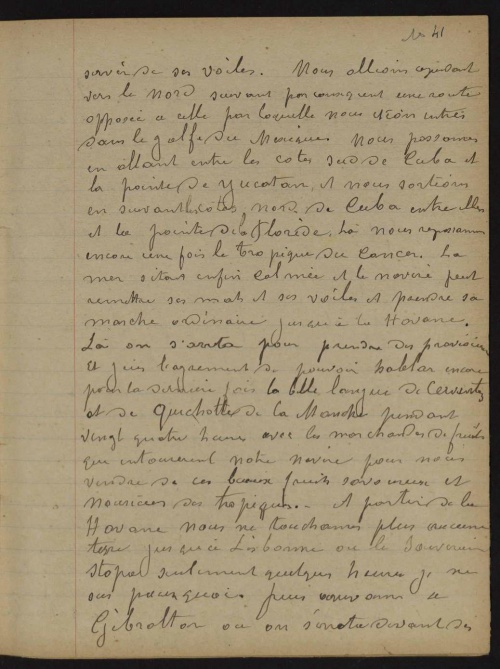 No 41
servir de ses voiles. Nous allions cependant
vers le nord suivant par consequent une route
opposée a celle par laquelle nous étions entrés
dans le golfe du Mexique. Nous passames
en allant entre les cotes sud de Cuba et
la pointe de Yucatan, et nous sortions
en suivant les cotes nord de Cuba entre elles
et la pointe de la Floride. Là nous repassames
encore une fois le tropique du Cancer. La
mer s'etait enfin calmée et le navire peut
remettre ses mats et ses voiles et prendre sa
marche ordinaire jusqu'à la Havane.
Là on s'arreta pour prendre des provisions
et j'eus l'agrement de pouvoir hablar encore
pour la derniere fois la belle langue de Cervantes
et de Quichotte de la Manche pendant
vingt quatre heures avec les marchandes de fruits
qui entourerent notre navire pour nous
vendre de ces beaux fruits savoureux et
des tropiques. A partir de la
Havane nous ne touchames plus aucune
terre jusqu'à Lisbonne ou le Souverain
stopa seulement quelques heures je ne
sais pourquoi puis a
Gibraltar ou on s'arreta devant ses